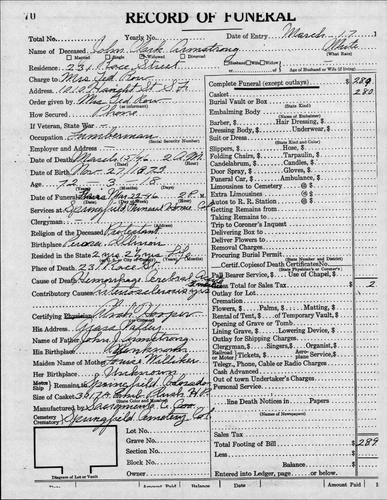 70
RECORD OF FUNERAL
Total No.
Yearly No.
Date of Entry March 17
Name of Deceased John Armstrong
White
(What Race)
Married Single Widowed Divorced
Residence: 231 Street
Charge to Mrs
Address: 1212 Haight St S.F.
Order given by Mrs
How Secured Phone
If Veteran, State War
Occupation Lumberman
(Social Security Number)
Employer and Address
Date of Death March 13-46 2 A.M.
Date of Birth Nov. 27, 1873
Age 72 3 15
(Years) (Months) (Days)
Date of Funeral
Services at Springfield Funeral Home
Clergyman
Religion of the Deceased Protestant
Birthplace Illinois
Resided in the State
Place of Death 231
Cause of Death Hemorrhage Cerebral
Contributory Causes Arteriosclerosis
Certifying Physician Cooper
His Address Grass Valley
Name of Father John Armstrong
His Birthplace Unknown
Maiden Name of Mother
Her Birthplace Unknown
Remains to Springfield Colorado
Size of Casket
(State Color and Number)
Manufactured by Sacramento C. Co.
Cemetery
Crematory
Springfield Cemetery Col
Lot No.
Grave No.
Section No.
Block No.
Owner
Diagram of Lot or Vault
Complete Funeral (except outlays) $289
Casket 280
Burial Vault or Box
(State Kind)
Embalming Body
(Name of Embalmer)
Barber, Hair Dressing,
Dressing Body, Underwear,
Suit or Dress
(State Kind and Color)
Slippers, Hose,
Folding Chairs, Tarpaulin,
Candelabrum, Candles,
Door Spray, Gloves,
Funeral Car, Ambulance,
Limousines to Cemetery @
Extra Limousines @
Autos to R. R. Station @
Getting Remains from
Taking Remains to
Trip to Coroner's Inquest
Delivering Box to
Deliver Flowers to
Removal Charges
Procuring Burial Permit
(State Number and District)
Certif. Copies of Death Certificates No.
(State Physician's or Coroner's)
Pall Bearer Service, Use of Chapel,
Less Total for Sales Tax 2
Outlay for Lot
Cremation
Flowers, Palms, Matting,
Rental of Tent, of Temporary Vault,
Opening of Grave or Tomb
Lining Grave, Lowering Device,
Outlay for Shipping Charges
Clergyman, Singers, Organist,
Railroad or Motor Tickets, Aeroplane Service,
Telegr., Phone, Cable or Radio Charges
Cash Advanced
Out of town Undertaker's Charges
Personal Service
line Death Notices in Papers
(Names of Newspapers)
Sales Tax
Total Footing of Bill 289
Less
Balance
Entered into Ledger, page or below.
Date Amount Paid Balance Date Amount Paid